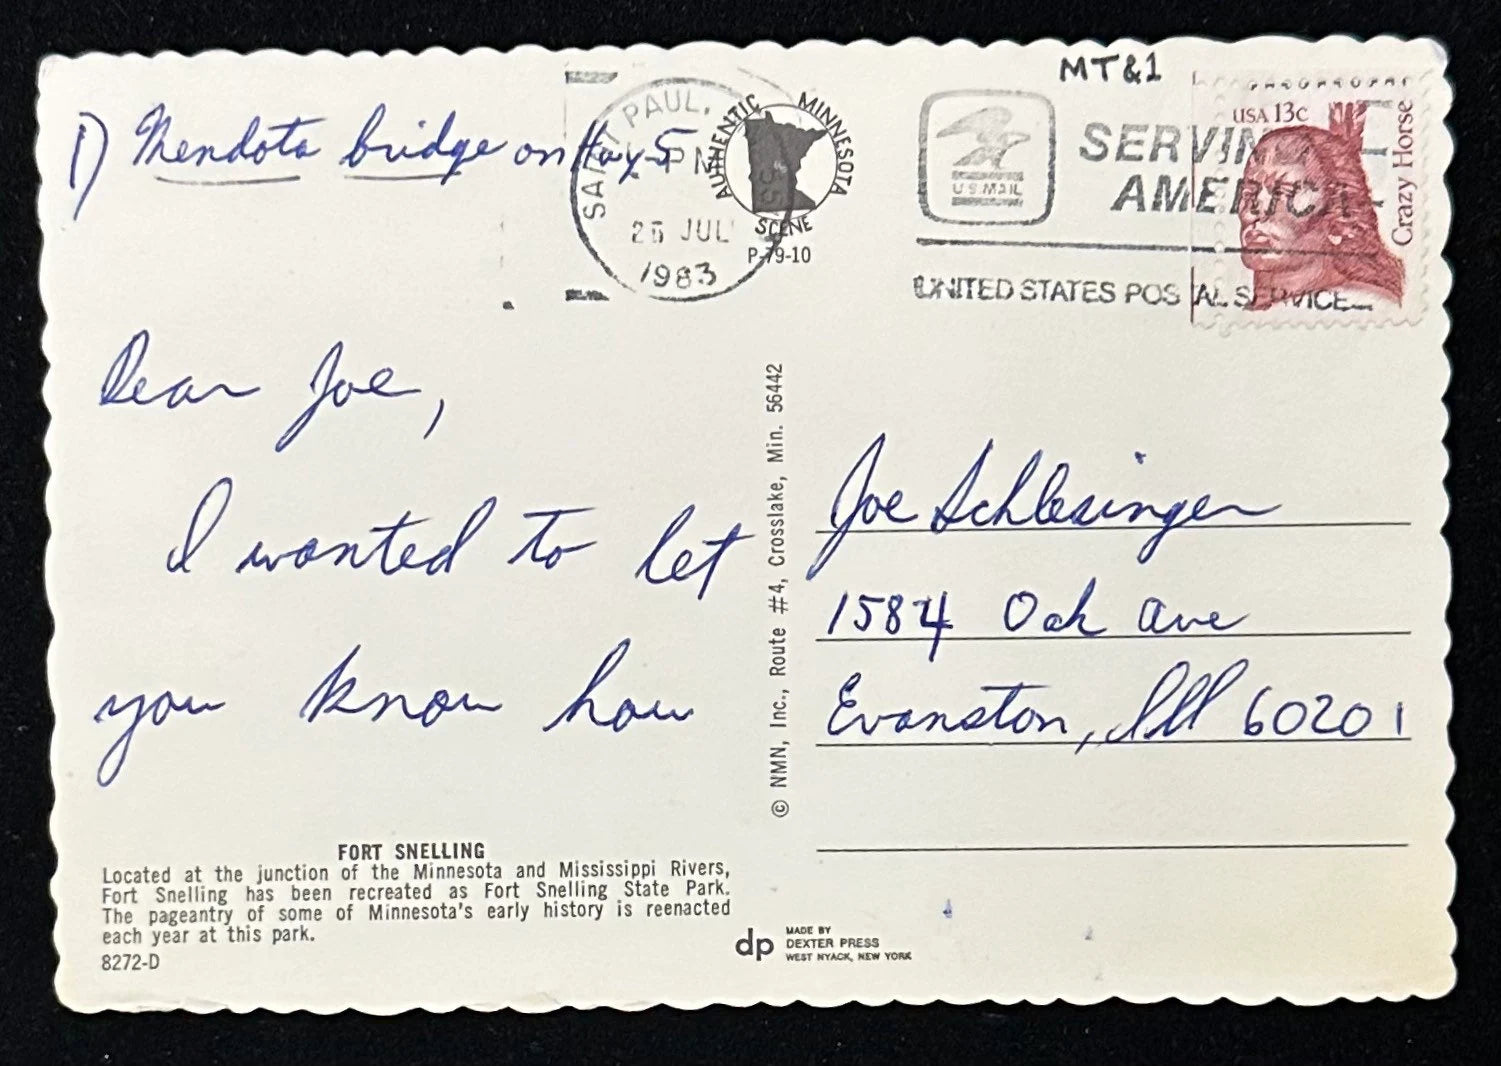 MT&1
1) Mendota bridge on Hwy 55
SAINT PAUL,
PM
25 JUL
1983
AUTHENTIC MINNESOTA
SCENE
P-79-10
U.S.MAIL
SERVING
AMERICA
UNITED STATES POSTAL SERVICE
USA 13c
Crazy Horse
Dear Joe,
I wanted to let
you know how
FORT SNELLING
Located at the junction of the Minnesota and Mississippi Rivers,
Fort Snelling has been recreated as Fort Snelling State Park.
The pageantry of some of Minnesota's early history is reenacted
each year at this park.
8272-D
© NMN, Inc., Route #4, Crosslake, Min. 56442
dp
MADE BY
DEXTER PRESS
WEST NYACK, NEW YORK
Joe Schlesinger
1584 Oak Ave
Evanston, Ill 60201